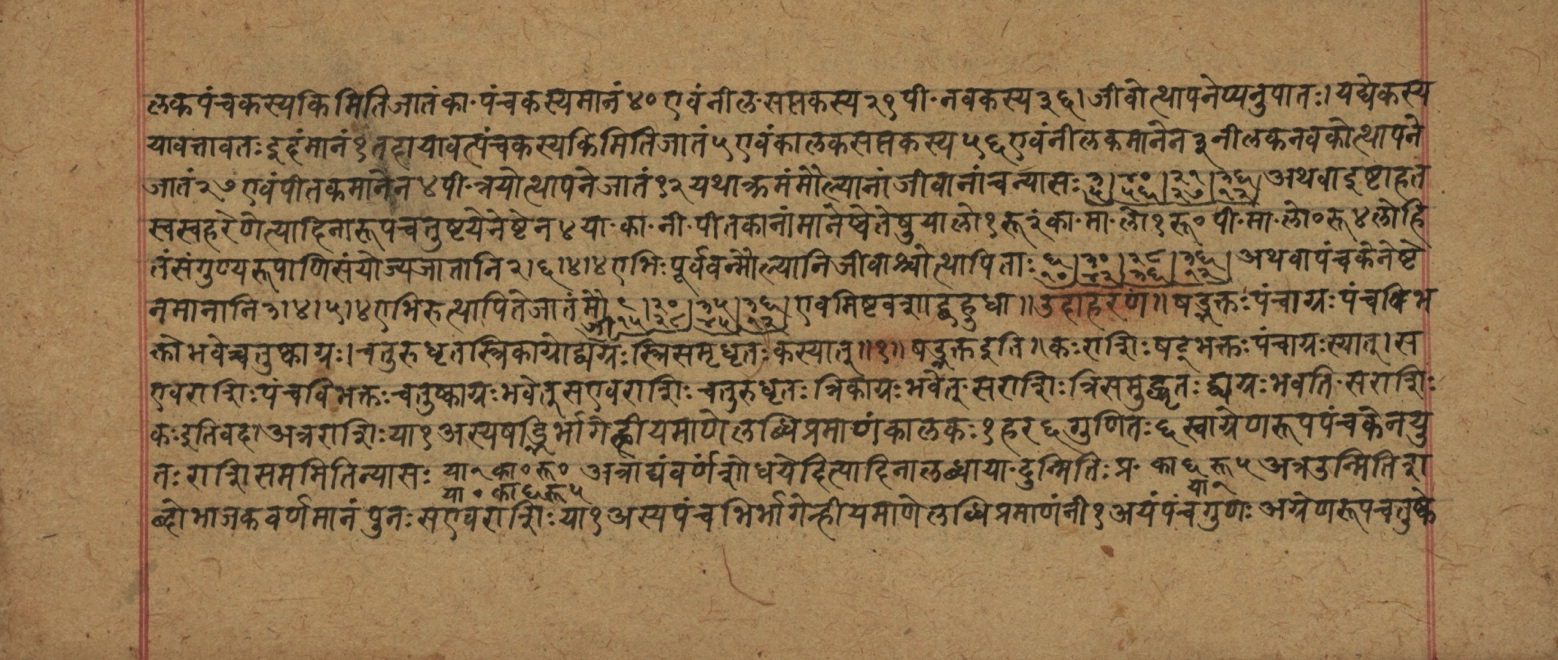 लकपंचकस्यकिमितिजातंका·पंचकस्यमानं४०एवंनील·सप्तकस्य२१पी·नवकस्य३६।जीवोत्थापनेप्यनुपातः।यद्येकस्य
यावत्तावतःइदंमानं१तदायावत्पंचकस्यकिमितिजातं५एवंकालकसप्तकस्य५६एवंनीलकमानेन३नीलकनवकोत्थापने
जातं२७एवंपीतकमानेन४पी·त्रयोत्थापनेजातं१२यथाक्रमंमौल्यानांजीवानांचन्यासः अथवाइष्टाहत
स्वस्वहरेणेत्यादिनारूपचतुष्टयेनेष्टेन४या·का·नी·पीतकानांमानेष्वेतेषुयालो१रू२का·मा·लो१रू०पी·मा·लो०रू४लोहि
तंसंगुण्यरूपाणिसंयोज्यजातानि२।६।४।४एभिःपूर्ववन्मौल्यानिजीवाश्चोत्थापिताः अथवापंचकेनेष्टे
नमानानि३।४।५।४एभिरुत्थापितेजातं एवमिष्टवशाद्बहुधा॥उदाहरणं॥षड्भक्तःपंचाग्रःपंचविभ
क्तोभवेच्चतुष्काग्रः।चतुरुधृतस्त्रिकाग्रोद्व्यग्रःस्त्रिसमुधृतःकस्यात्॥१॥षड्भक्तइति॥कःराशिःषड्भक्तःपंचाग्रःस्यात्।स
एवराशिःपंचविभक्तःचतुष्काग्रःभवेत्सएवराशिःचतुरुधृतःत्रिकाग्रःभवेत्·सराशिःत्रिसमुद्धृतःद्व्यग्रःभवति·सराशिः
कःइतिवद।अत्रराशिःया१अस्यषड्भिर्भागेह्रीयमाणेलब्धिप्रमाणंकालकः१हर६गुणितः६स्वाग्रेणरूपपंचकेनयु
तःराशिसममितिन्यासः या१का०रू० अत्राद्यंवर्णंशोधयेदित्यादिनालब्धाया·दुन्मितिः·प्र·का६रू५अत्रउन्मितिश
या०का६रू५ या१
ब्दोभाजकवर्णमानंपुनःसएवराशिःया१अस्यपंचभिर्भागेन्हीयमाणेलब्धिप्रमाणंनी१अयंपंचगुणःअग्रेणरूपचतुष्के